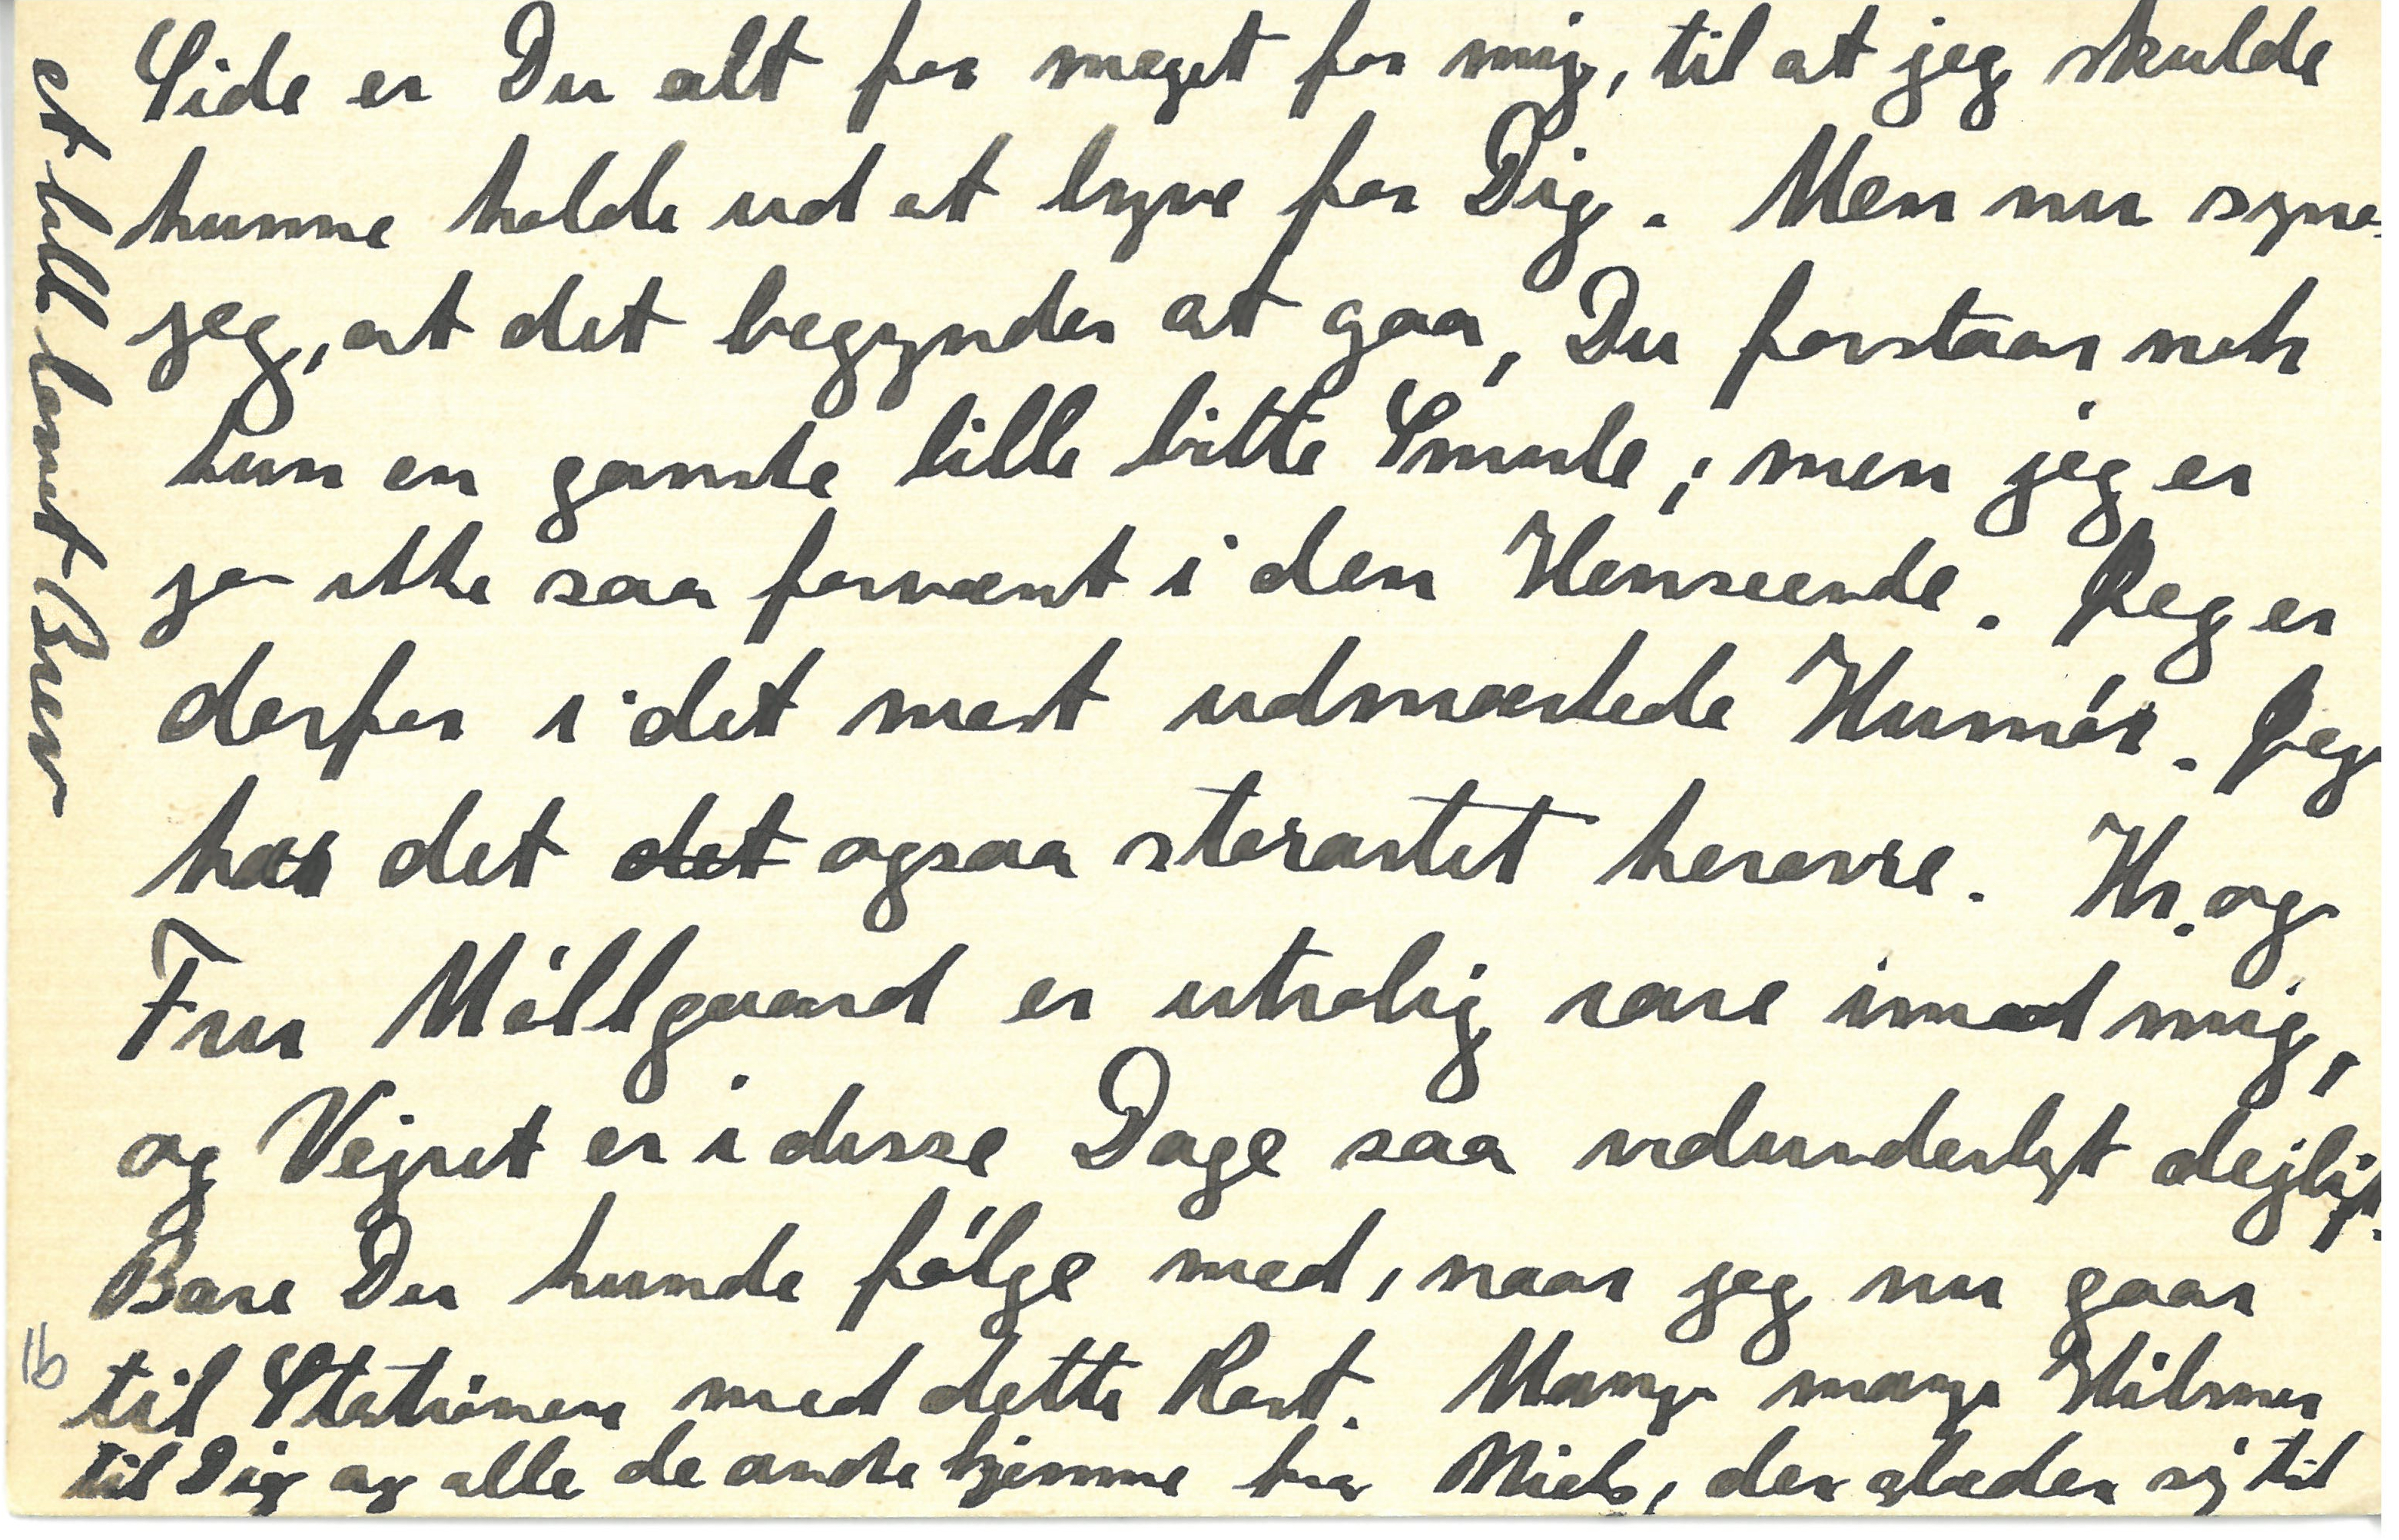 Side er Du alt for meget for mig, til at jeg skulde
kunne holde ud at lyve for Dig. Men nu synes
jeg, at det begynder at gaa, Du forstaar nok
kun en ganske lille bitte Smule; men jeg er
jo ikke saa forvænt i den Henseende. Jeg er
derfor i det mest udmærkede Humør. Jeg
har det det ogsaa storartet herovre. Hr. og
Fru Möllgaard er utrolig rare imod mig,
og Vejret er i disse Dage saa vidunderligt dejligt.
Bare Du kunde følge med, naar jeg nu gaar
til Stationen med dette Kort. Mange mange Hilsner
til Dig og alle de andre hjemme fra Niels, der glæder sig til
et lille lænet Brev